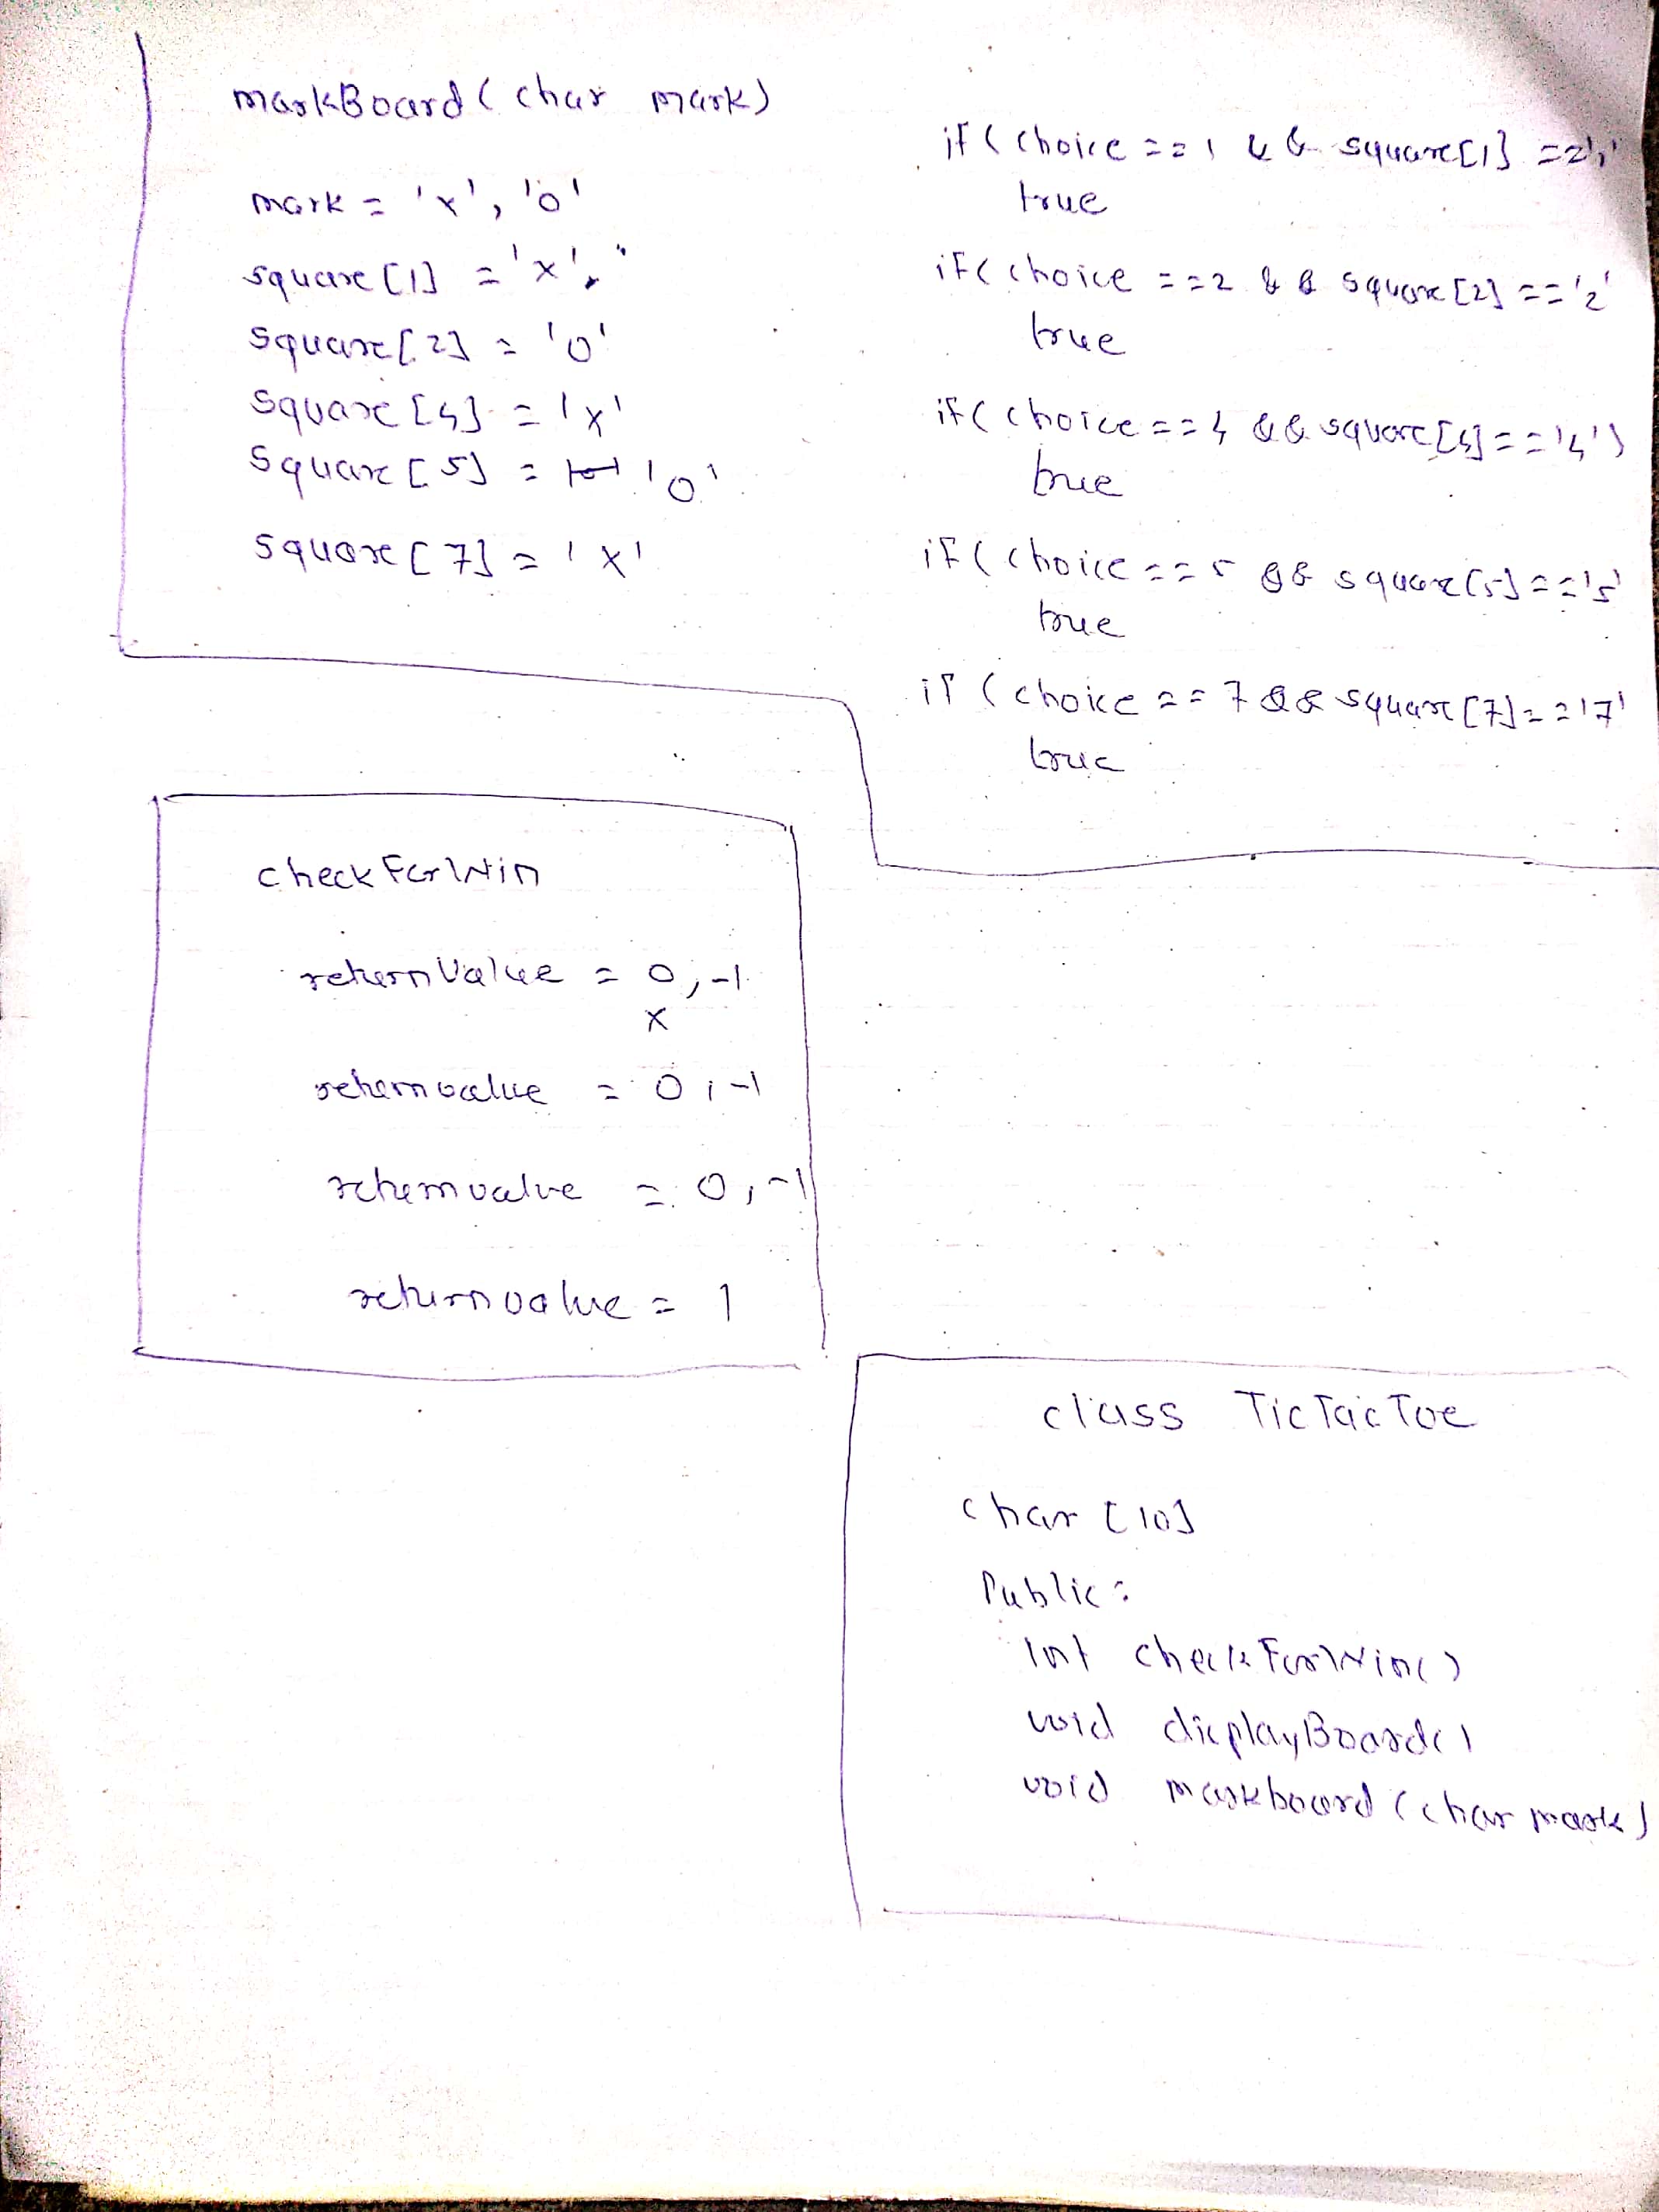 markBoard ( char mark)
mark = 'x', '0'
square [1] = 'x',
square [2] = '0'
square [4] = 'x'
square [5] = '0'
square [7] = 'x'
if ( choice == 1 && square[1] == '1'
true
if ( choice == 2 && square [2] == '2'
true
if ( choice == 4 && square [4] == '4')
true
if ( choice == 5 && square [5] == '5'
true
if ( choice == 7 && square [7] == '7'
true
checkForWin
returnValue = 0, -1
x
returnvalue = 0, -1
returnvalue = 0, -1
returnvalue = 1
class TicTacToe
char [10]
Public:
int checkForWin()
void displayBoard()
void markboard (char mark)